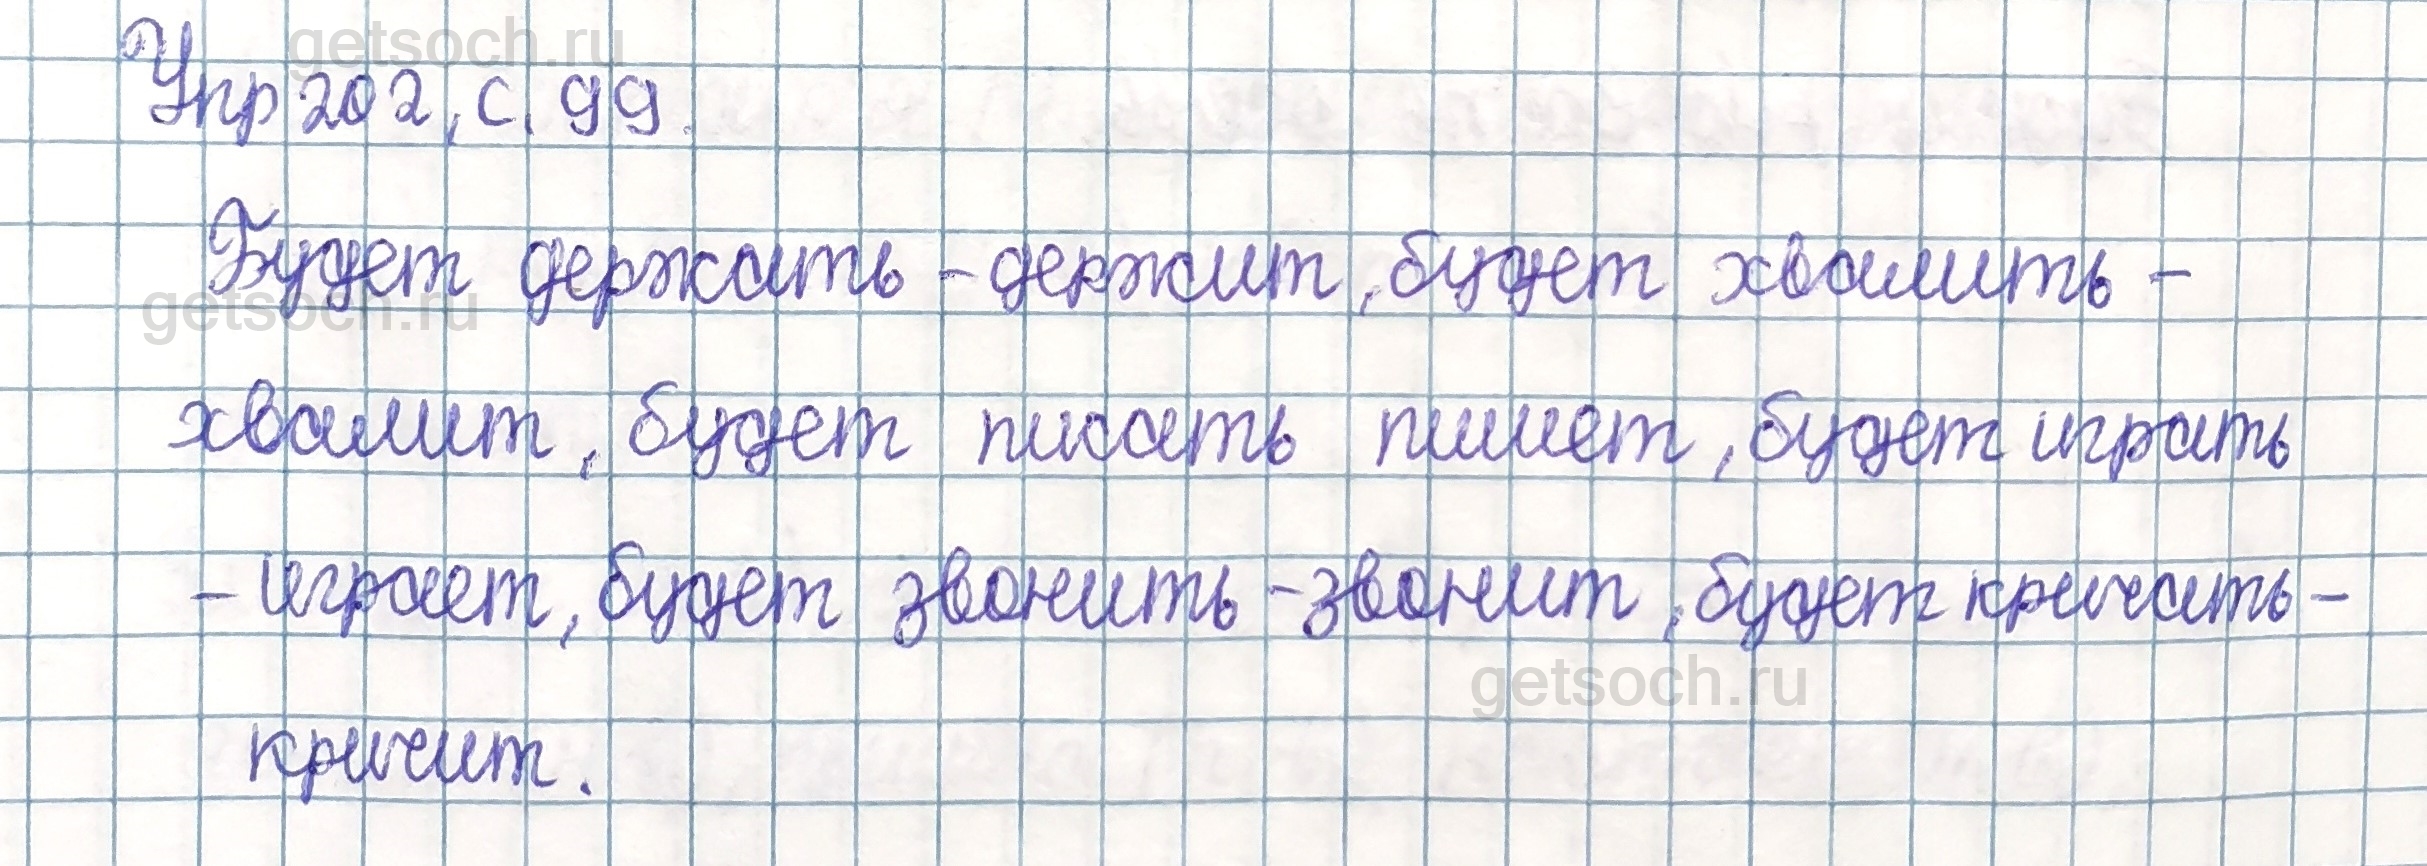 getsoch.ru
Упр 202, с. 99.
Будет держать - держит, будет хвалить -
getsoch.ru
хвалит, будет писать пишет, будет играть
- играет, будет звонить - звонит, будет кричать -
getsoch.ru
кричит.